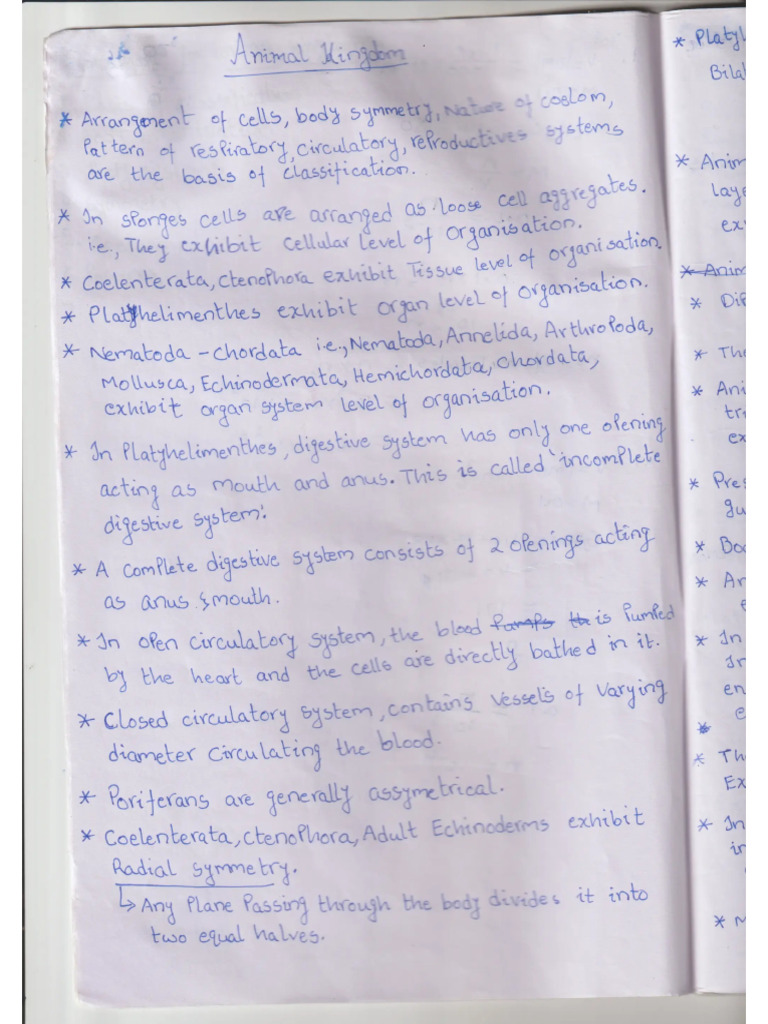 Animal Kingdom
* Arrangement of cells, body symmetry, Nature of coelom,
Pattern of respiratory, circulatory, reproductives systems
are the basis of classification.
* In sponges cells are arranged as loose cell aggregates.
i.e., They exhibit cellular level of organisation.
* Coelenterata, Ctenophora exhibit Tissue level of organisation.
* Platyhelimenthes exhibit organ level of organisation.
* Nematoda - Chordata i.e., Nematoda, Annelida, Arthropoda,
Mollusca, Echinodermata, Hemichordata, Chordata,
exhibit organ system level of organisation.
* In Platyhelimenthes, digestive system has only one opening
acting as mouth and anus. This is called 'incomplete
digestive system'.
* A complete digestive system consists of 2 openings acting
as anus & mouth.
* In open circulatory system, the blood pumps th is pumped
by the heart and the cells are directly bathed in it.
* Closed circulatory system, contains vessels of varying
diameter circulating the blood.
* Poriferans are generally assymetrical.
* Coelenterata, Ctenophora, Adult Echinoderms exhibit
Radial symmetry.
↳ Any Plane Passing through the body divides it into
two equal halves.
* Platyl
Bilal
* Anim
laye
ex
* Anim
* Dip
* The
* Ani
tri
ex
* Pres
gu
* Boo
* Ar
e
* In
In
en
e
*
* Th
Ex
* In
in
* M